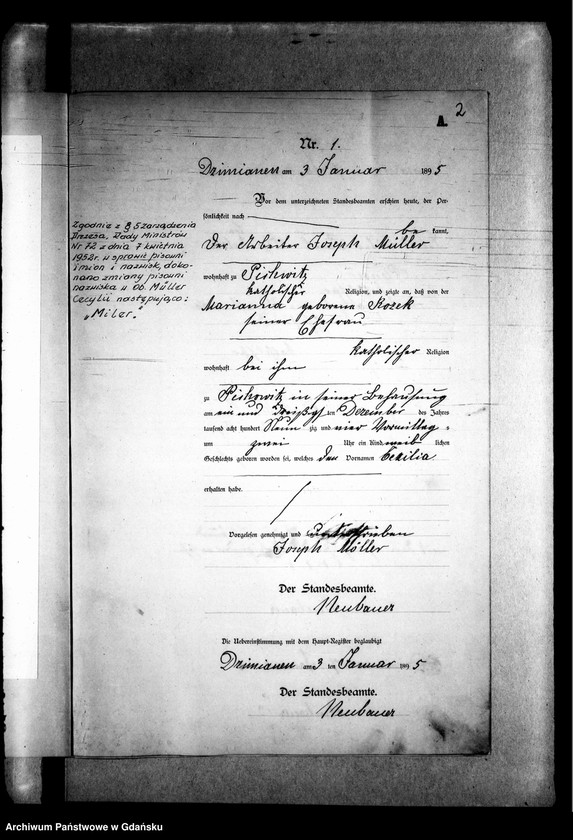 2
A.
Nr. 1.
Dzimianen am 3 Januar 1895
Vor dem unterzeichneten Standesbeamten erschien heute, der Per-
sönlichkeit nach
be kannt,
der Arbeiter Joseph Müller
wohnhaft zu Peikwitz
katholischer Religion, und zeigte an, daß von der
Marianna geborene Kozek
seiner Ehefrau
katholischer Religion
wohnhaft bei ihm
zu Peikowitz in seiner Behausung
am ein und dreißigsten Dezember des Jahres
tausend acht hundert Neun zig und vier Vormittag s
um zwei Uhr ein Kind weib lichen
Geschlechts geboren worden sei, welches den Vornamen Cezilia
erhalten habe.
Vorgelesen, genehmigt und unterschrieben
Joseph Müller
Der Standesbeamte.
Neubauer
Die Uebereinstimmung mit dem Haupt-Register beglaubigt
Dzimianen am 3 ten Januar 1895.
Der Standesbeamte.
Neubauer
Zgodnie z § 5 zarządzenia
Prezesa Rady Ministrów
Nr 72 z dnia 7 kwietnia
1952r. w sprawie pisowni
imion i nazwisk, doko-
nano zmiany pisowni
nazwiska u ob. Müller
Cecylii następująco:
"Miler."
Archiwum Państwowe w Gdańsku